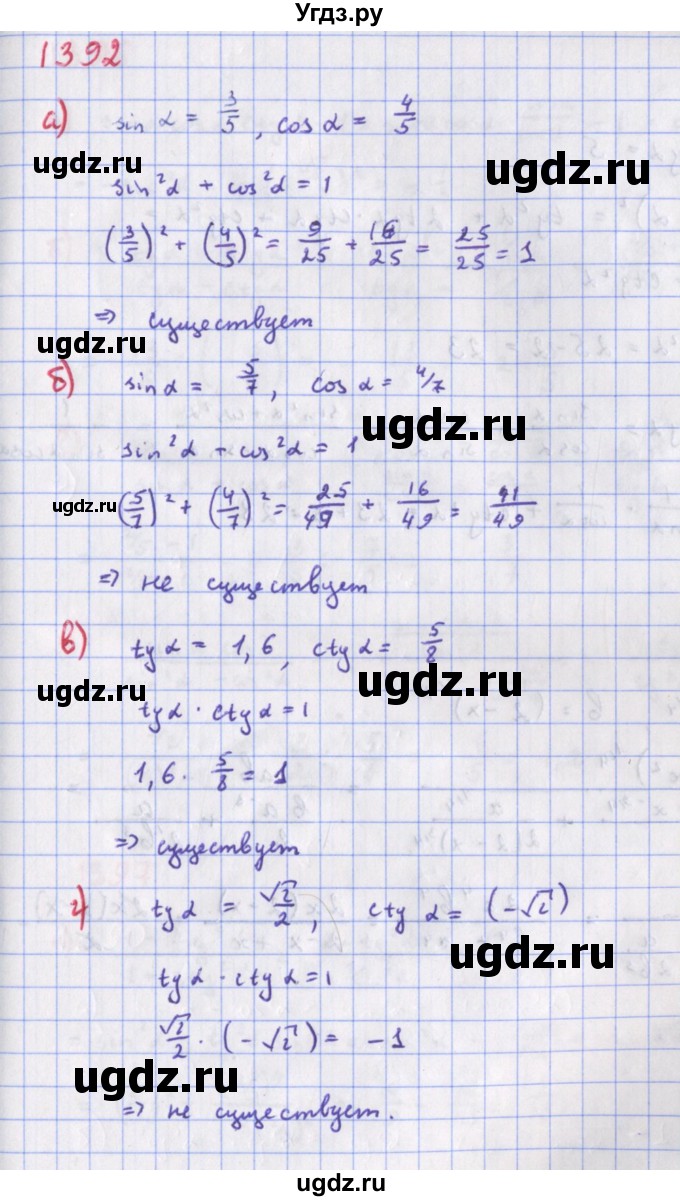 Угдз.ру
1392
а) sin α = 3/5, cos α = 4/5
ugdz.ru ugdz.ru
sin²α + cos²α = 1
(3/5)² + (4/5)² = 9/25 + 16/25 = 25/25 = 1
⇒ существует
ugdz.ru ugdz.ru
б) sin α = 5/7, cos α = 4/7
ugdz.ru
sin²α + cos²α = 1
ugdz.ru (5/7)² + (4/7)² = 25/49 + 16/49 = 41/49
ugdz.ru
⇒ не существует
в) tg α = 1,6, ctg α = 5/8
ugdz.ru ugdz.ru
tg α · ctg α = 1
1,6 · 5/8 = 1
⇒ существует
ugdz.ru
г) tg α = √2/2, ctg α = (-√2)
ugdz.ru
tg α · ctg α = 1
√2/2 · (-√2) = -1
ugdz.ru
⇒ не существует.
ugdz.ru ugdz.ru
ugdz.ru